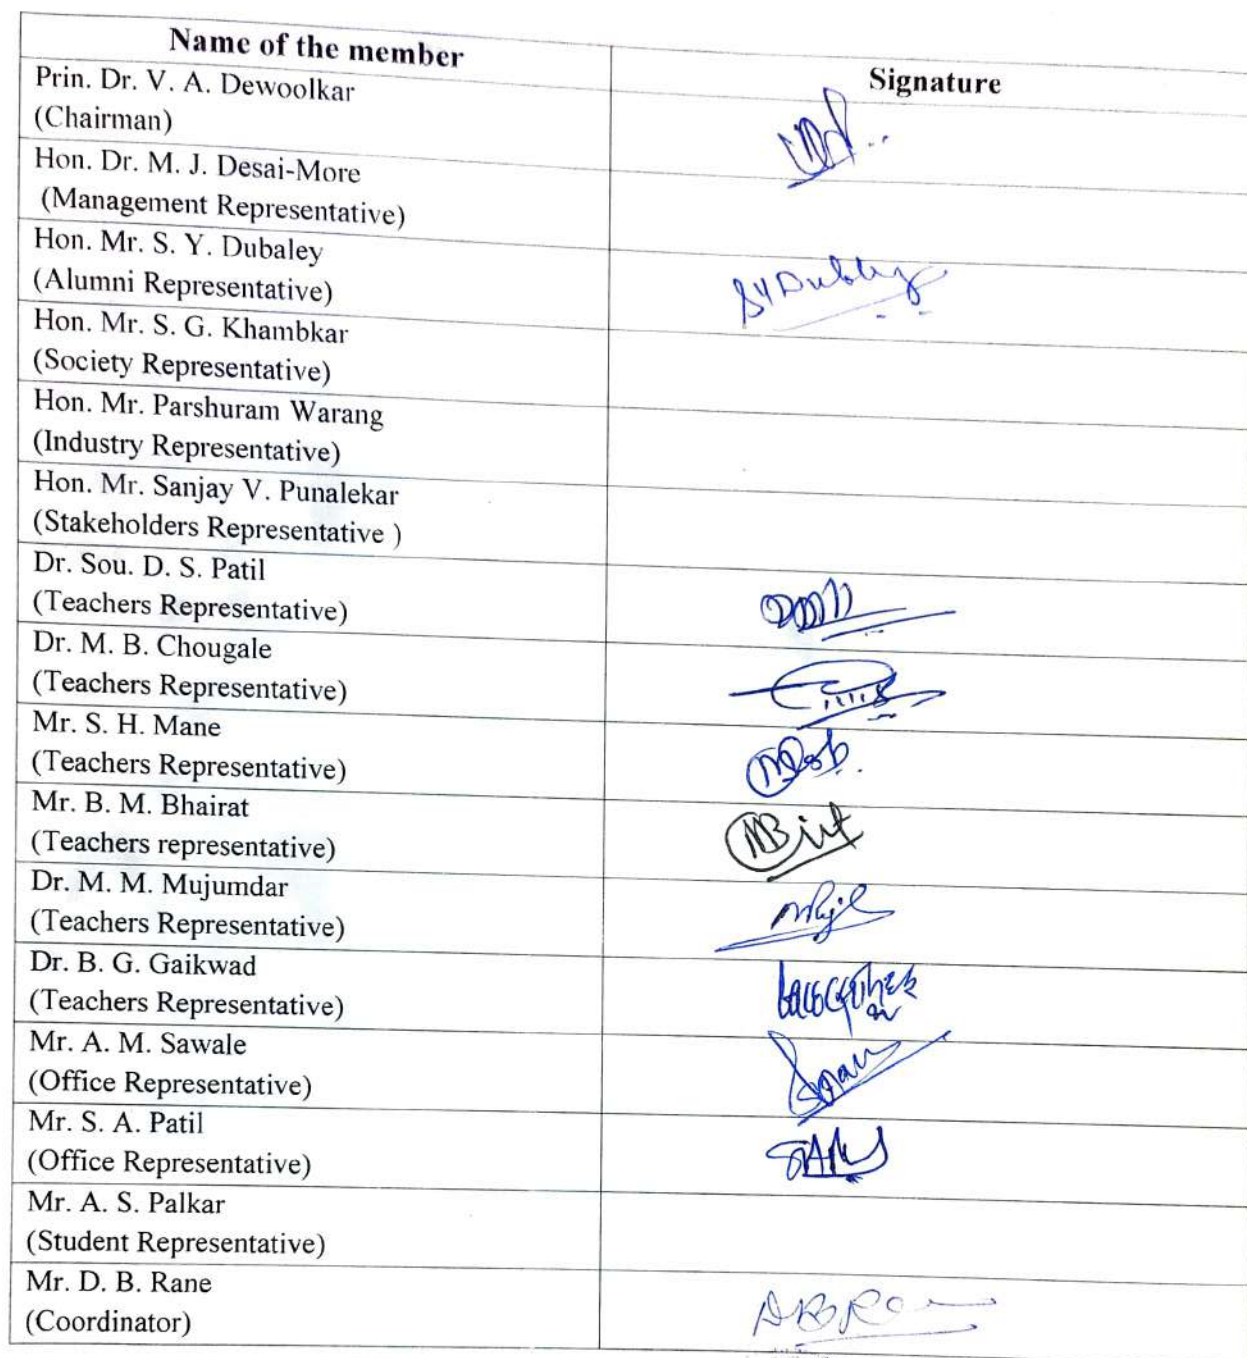 Name of the member
Signature
Prin. Dr. V. A. Dewoolkar
(Chairman)
Hon. Dr. M. J. Desai-More
(Management Representative)
Hon. Mr. S. Y. Dubaley
(Alumni Representative)
SYDubley
Hon. Mr. S. G. Khambkar
(Society Representative)
Hon. Mr. Parshuram Warang
(Industry Representative)
Hon. Mr. Sanjay V. Punalekar
(Stakeholders Representative )
Dr. Sou. D. S. Patil
(Teachers Representative)
Dr. M. B. Chougale
(Teachers Representative)
Mr. S. H. Mane
(Teachers Representative)
Mr. B. M. Bhairat
(Teachers representative)
Dr. M. M. Mujumdar
(Teachers Representative)
Dr. B. G. Gaikwad
(Teachers Representative)
Mr. A. M. Sawale
(Office Representative)
Mr. S. A. Patil
(Office Representative)
Mr. A. S. Palkar
(Student Representative)
Mr. D. B. Rane
(Coordinator)